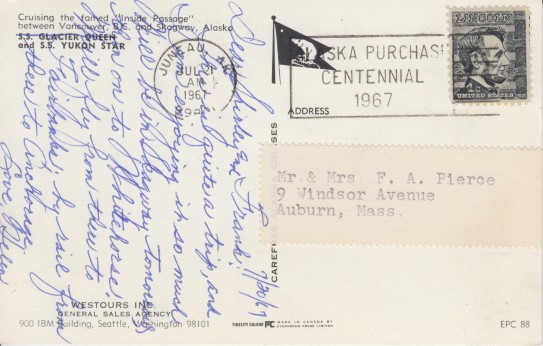 Cruising the famed "Inside Passage"
between Vancouver, B.C. and Skagway, Alaska
S.S. GLACIER QUEEN
and S.S. YUKON STAR
Dear Shirley and Frank: 7/20/67
This is quite a trip, and
am enjoying it so much
will be in Skagway tomorrow
then on to Whitehorse
and fly from there to
Fairbanks, by rail from
there to Anchorage.
Love, Helen
WESTOURS INC.
GENERAL SALES AGENCY
900 IBM Building, Seattle, Washington 98101
JUNEAU, AK
JUL 21
AM
1967
ALASKA PURCHASE
CENTENNIAL
1967
LINCOLN
4c
UNITED STATES
ADDRESS
Mr. & Mrs. F. A. Pierce
9 Windsor Avenue
Auburn, Mass.
FIDELITY COLOUR
MADE IN CANADA BY
EVERGREEN PRESS LIMITED
EPC 88